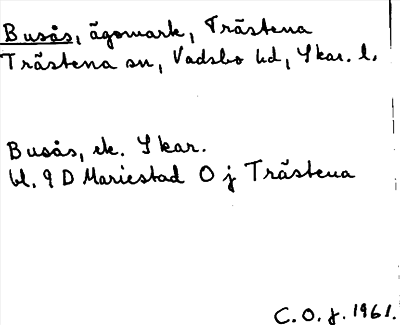 Busås, ägomark, Trästena
Trästena sn, Vadsbo hd, Skar. l.
Busås, ek. Skar.
bl. 9 D Mariestad O j Trästena
C. O. f. 1961.